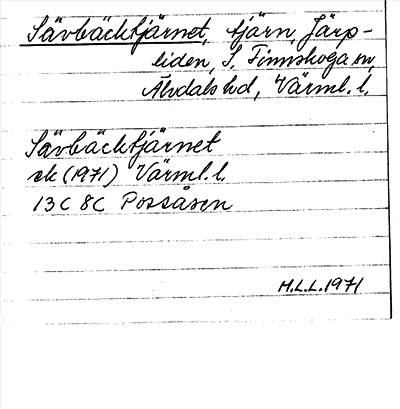 Sävbäcktjärnet, tjärn, Järp-
liden, S. Finnskoga sn,
Älvdals hd, Värml. l.
Sävbäcktjärnet
ek (1971) Värml. l.
13C 8C Possåsen
M.L.L. 1971